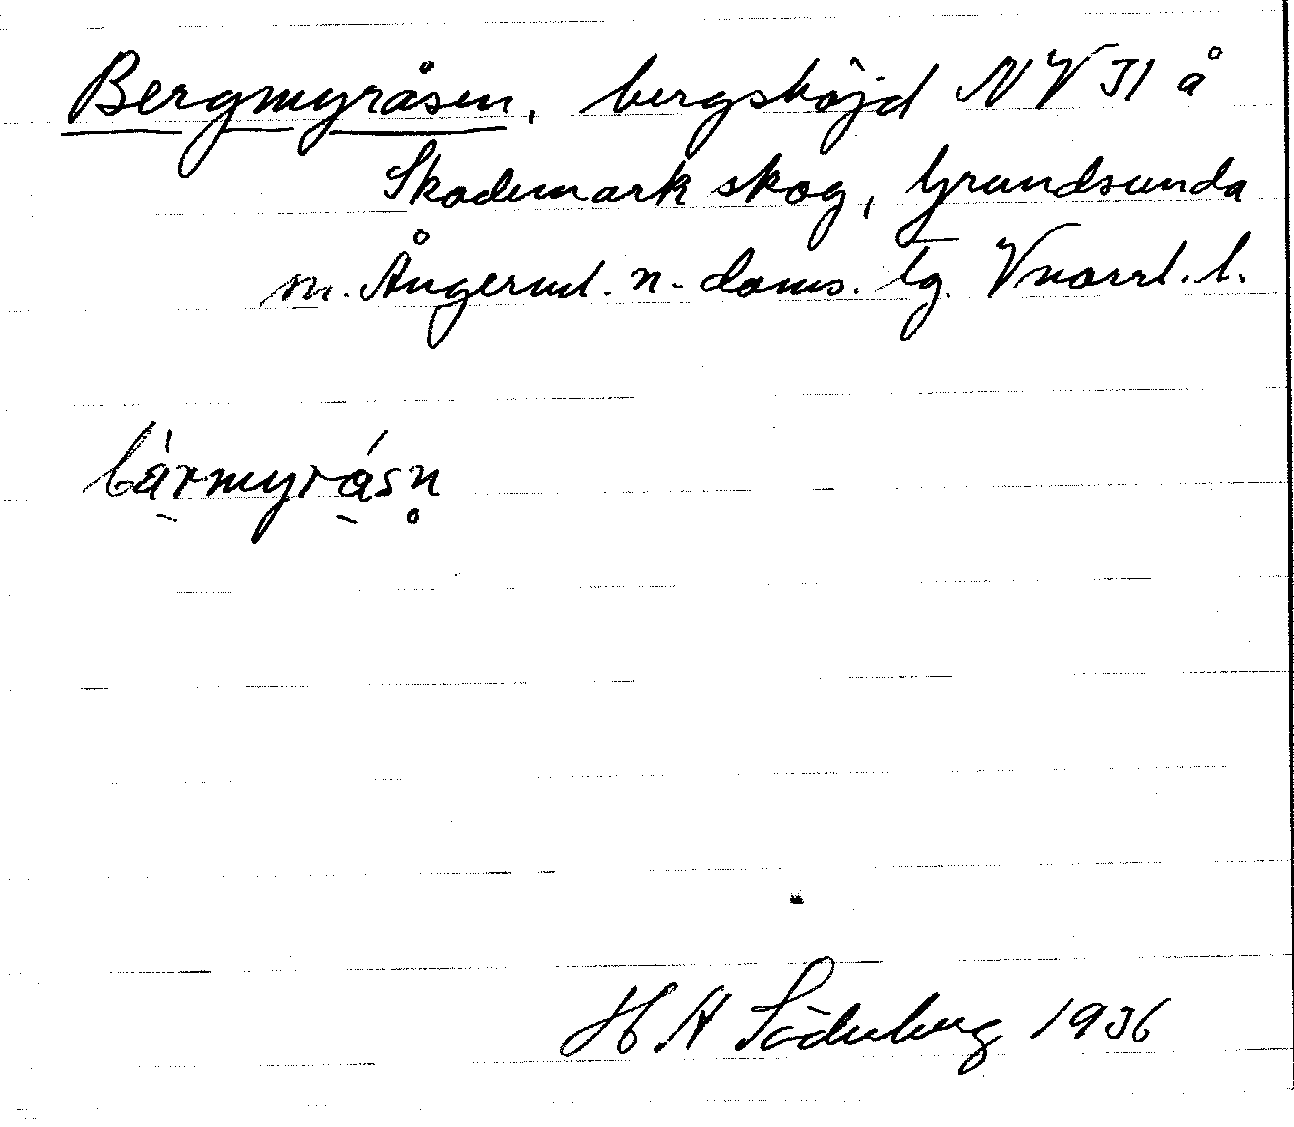 Bergmyråsen, bergshöjd NV 31 å
Skademark skog, Grundsunda
sn. Ångerml. n. doms. lg. Vnorrl. l.
bármyrásn̥
H A Söderberg 1936